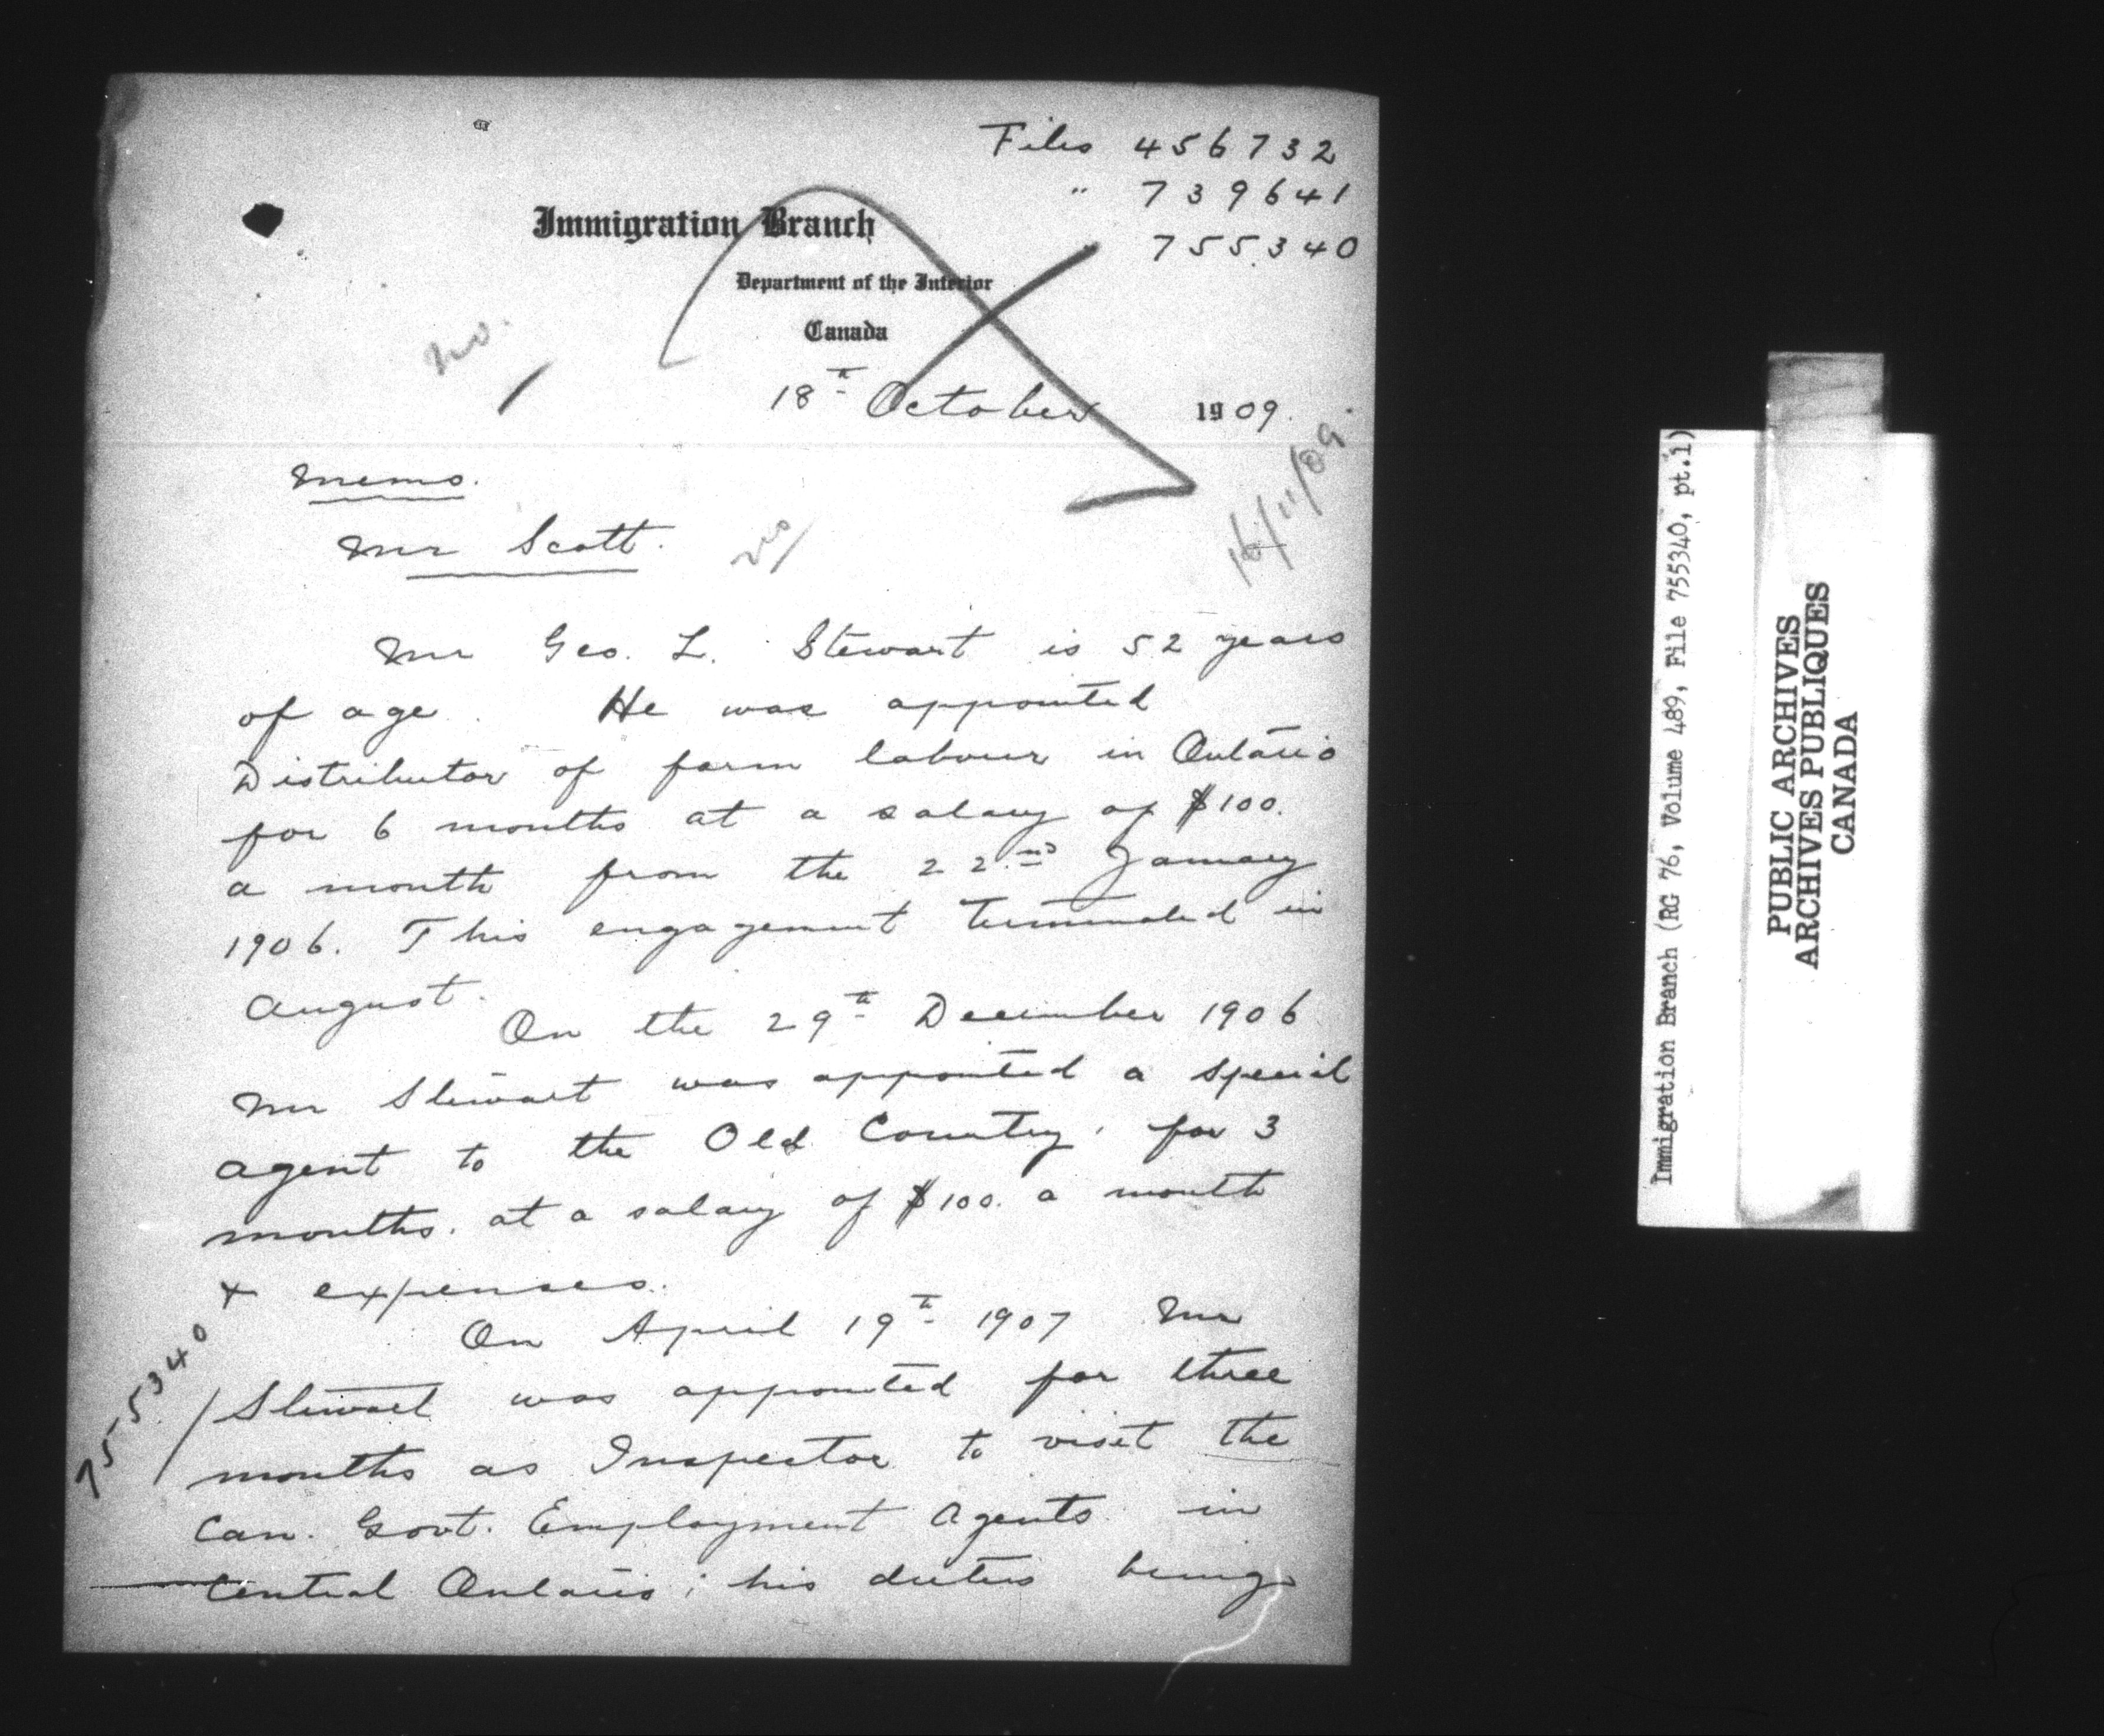 Files 456732
" 739641
" 755340
Immigration Branch
Department of the Interior
Canada
18th October 1909.
16/11/09
Memo.
Mr Scott.
Mr Geo. L. Stewart is 52 years
of age. He was appointed
Distributor of farm labour in Ontario
for 6 months at a salary of $100.
a month from the 22nd January
1906. This engagement terminated in
August.
On the 29th December 1906
Mr Stewart was appointed a special
agent to the Old Country, for 3
months. at a salary of $100. a month
& expenses.
On April 19th 1907 Mr
Stewart was appointed for three
months as Inspector to visit the
Can. Govt. Employment Agents in
Central Ontario; his duties being
755340
Immigration Branch (RG 76, Volume 489, File 755340, pt.1)
PUBLIC ARCHIVES
ARCHIVES PUBLIQUES
CANADA